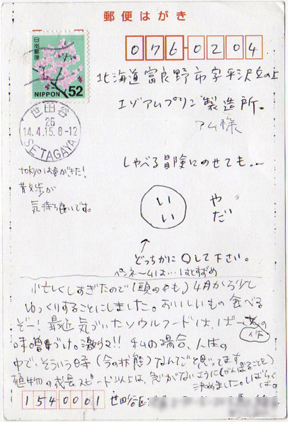 郵便はがき
日本郵便
NIPPON 52
世田谷
26
14.4.15. 8-12
SETAGAYA
0760204
北海道富良野市字平沢丘の上
エゾアムプリン製造所。
アム様
tokyoは春がきた!
散歩が
気持ち良いです。
しゃべる冒険にのせても…
いい
やだ
↑
どっちかに○して下さい。
ペンネームは…はとすずめ
忙しくしすぎたので(頭のやも)4月から少し
ゆっくりすることにしました。おいしいもの食べる
ぞー!最近気づいたソウルフードは、ばーあの
味噌づけの激!!私の場合、人生の
中で、そういう時(今の状態)なんだと思ってます。
植物の成長スピード以上は、急がないように(がんばること)
決めました。しばらくは。
1540001
世田谷区